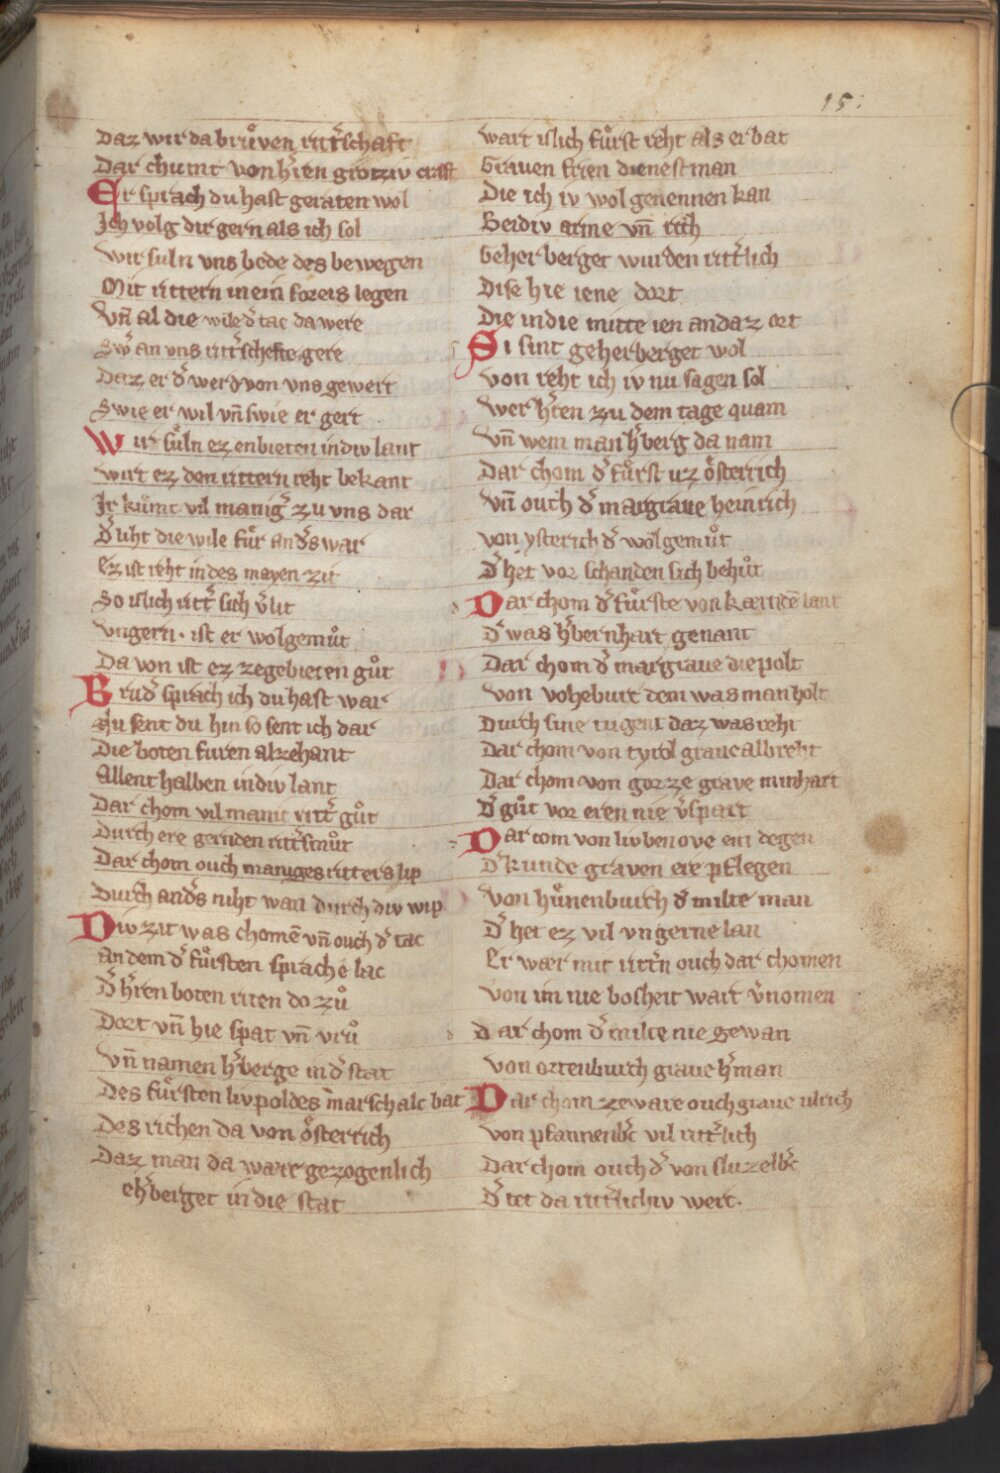 15:
Daz wir da bruͦven ritt̓schaft
Dar chumt von h̓ren groziv craft
Er sprach du hast geraten wol
Ich volg dir gern als ich sol
wir suln vns bede des bewegen
Mit rittern in ein foreis legen
Vn̄ al die wile d̓ tac da were
Sw̓ an vns ritt̓schefte gere
Daz er d̓ werd von vns gewert
Swie er wil vn̄ swie er gert
Wir suͤln ez enbieten in div lant
wirt ez den rittern reht bekant
Ir kuͤmt vil manig̓ zu vns dar
D̓ uht die wile fuͤr and̓s war
Ez ist reht in des mayen zit
So islich ritt̓ sich v̓lit
vngern· ist er wolgemuͦt
Da von ist ez ze gebieten guͦt
Brud̓ sprach ich du hast war
Nu sent du hin so sent ich dar
Die boten furen alzehant
Allenthalben in div lant
Dar chom vil manic ritt̓ guͦt
Durch ere gernden ritt̓s muͦt
Dar chom ouch maniges ritters lip
Durch and̓s niht wan durch div wip
Div zit was chomē vn̄ ouch d̓ tac
an dem d̓ fuͤrsten sprache lac
D̓ h̓ren boten riten do zuͦ
Dort vn̄ hie spat vn̄ vruͦ
Vn̄ namen h̓berge in d̓ stat
Des fuͤrsten livpoldes marschalc bat
Des richen da von oͤsterrich
Daz man da wære gezogenlich
eh̓berget in die stat
wart islich fuͤrst reht als er bat
Graven frien dienestman
Die ich iv wol genennen kan
Beidiv arme vn̄ rich
Geherberget wurden ritt̓lich
Dise hie iene dort
Die in die mitte ien an daz ort
Si sint geherberget wol
von reht ich iv nu sagen sol
wer h̓ren zu dem tage quam
Vn̄ wem man h̓berg da nam
Dar chom d̓ fuͤrst uz oͤsterrich
Vn̄ ouch d̓ margrave heinrich
von ysterich d̓ wolgemuͦt
D̓ het vor schanden sich behuͦt
Dar chom d̓ fuͤrste von kærndē lant
D̓ was h̓ bernhart genant
Dar chom d̓ margrave diepolt
von voheburc dem was man holt
Durch sine tugent daz was reht
Dar chom von tyrol grave albreht
Dar chom von gorze grave minhart
D̓ guͦt vor eren nie v̓spart
Dar com von livbenove ein degen
D̓ kunde graven ere pflegen
von huͤnenburch d̓ milte man
D̓ het ez vil vngerne lan
Er wær mit ritt̓n ouch dar chomen
von im nie bosheit wart v̓nomen
Dar chom d̓ milte nie gewan
von ortenburch grave h̓man
Dar chom zeware ouch grave ulrich
von pfannenb̓c vil ritt̓lich
Dar chom ouch d̓ von sluzelb̓c
D̓ tet da ritt̓lichiv werc·